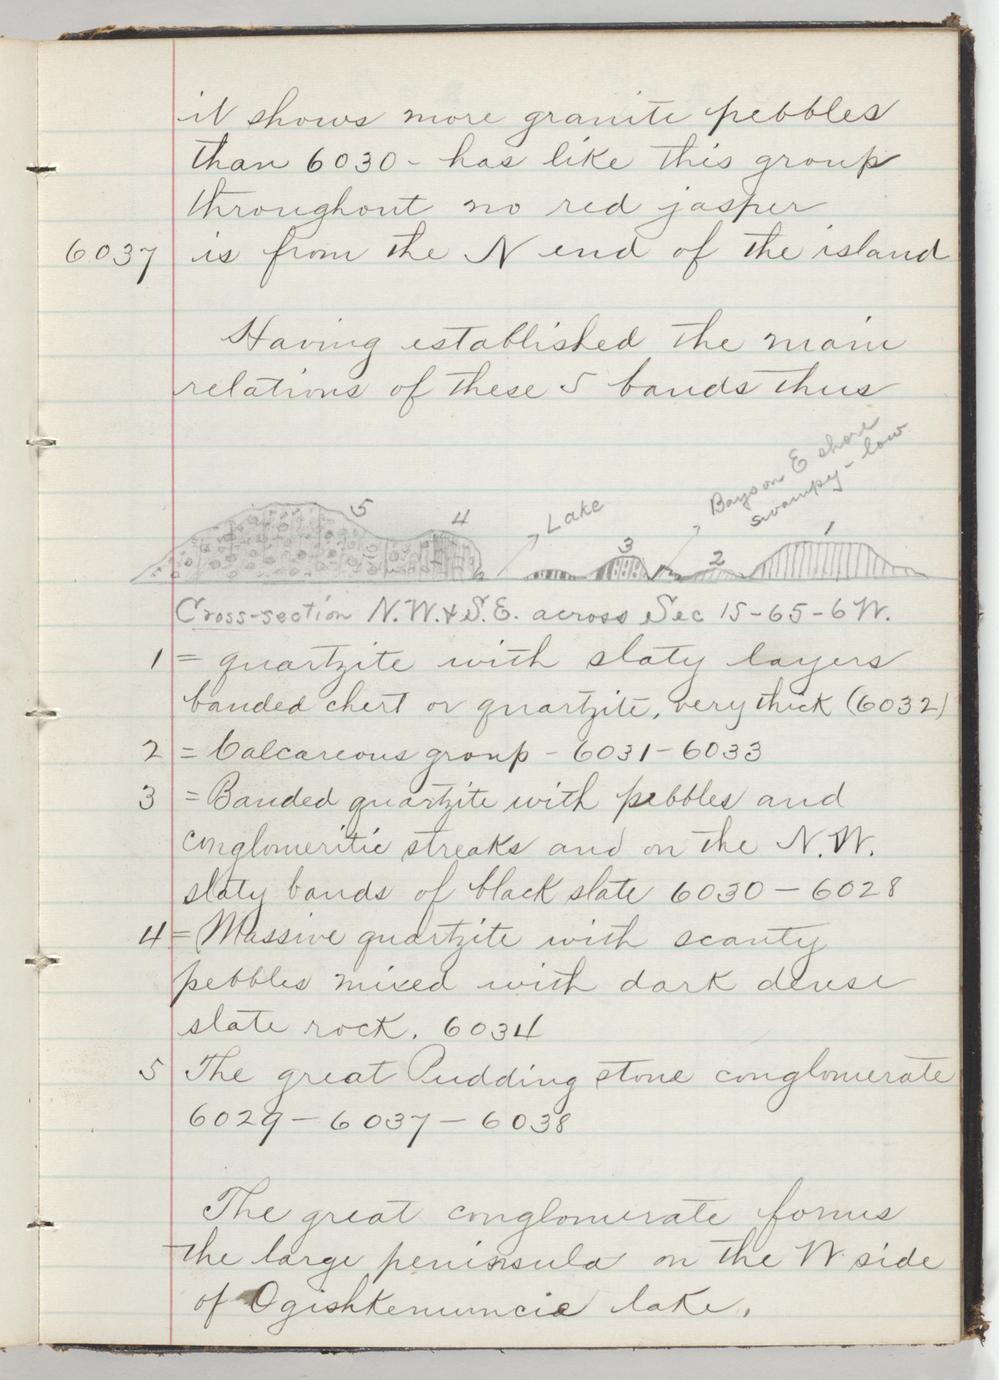 it shows more granite pebbles
than 6030 - has like this group
throughout no red jasper
6037 is from the N end of the island
Having established the main
relations of these 5 bands thus
5
4
Lake
3
Bays on E shore
swampy - low
2
1
Cross-section N.W. & S.E. across Sec 15-65-6W.
1 = quartzite with slaty layers
banded chert or quartzite, very thick (6032)
2 = Calcareous group - 6031 - 6033
3 = Banded quartzite with pebbles and
conglomeritic streaks and on the N.W.
slaty bands of black slate 6030 - 6028
4 = Massive quartzite with scanty
pebbles mixed with dark dense
slate rock. 6034
5 The great Pudding stone conglomerate
6029 - 6037 - 6038
The great conglomerate forms
the large peninsula on the W. side
of Ogishkemuncie lake.